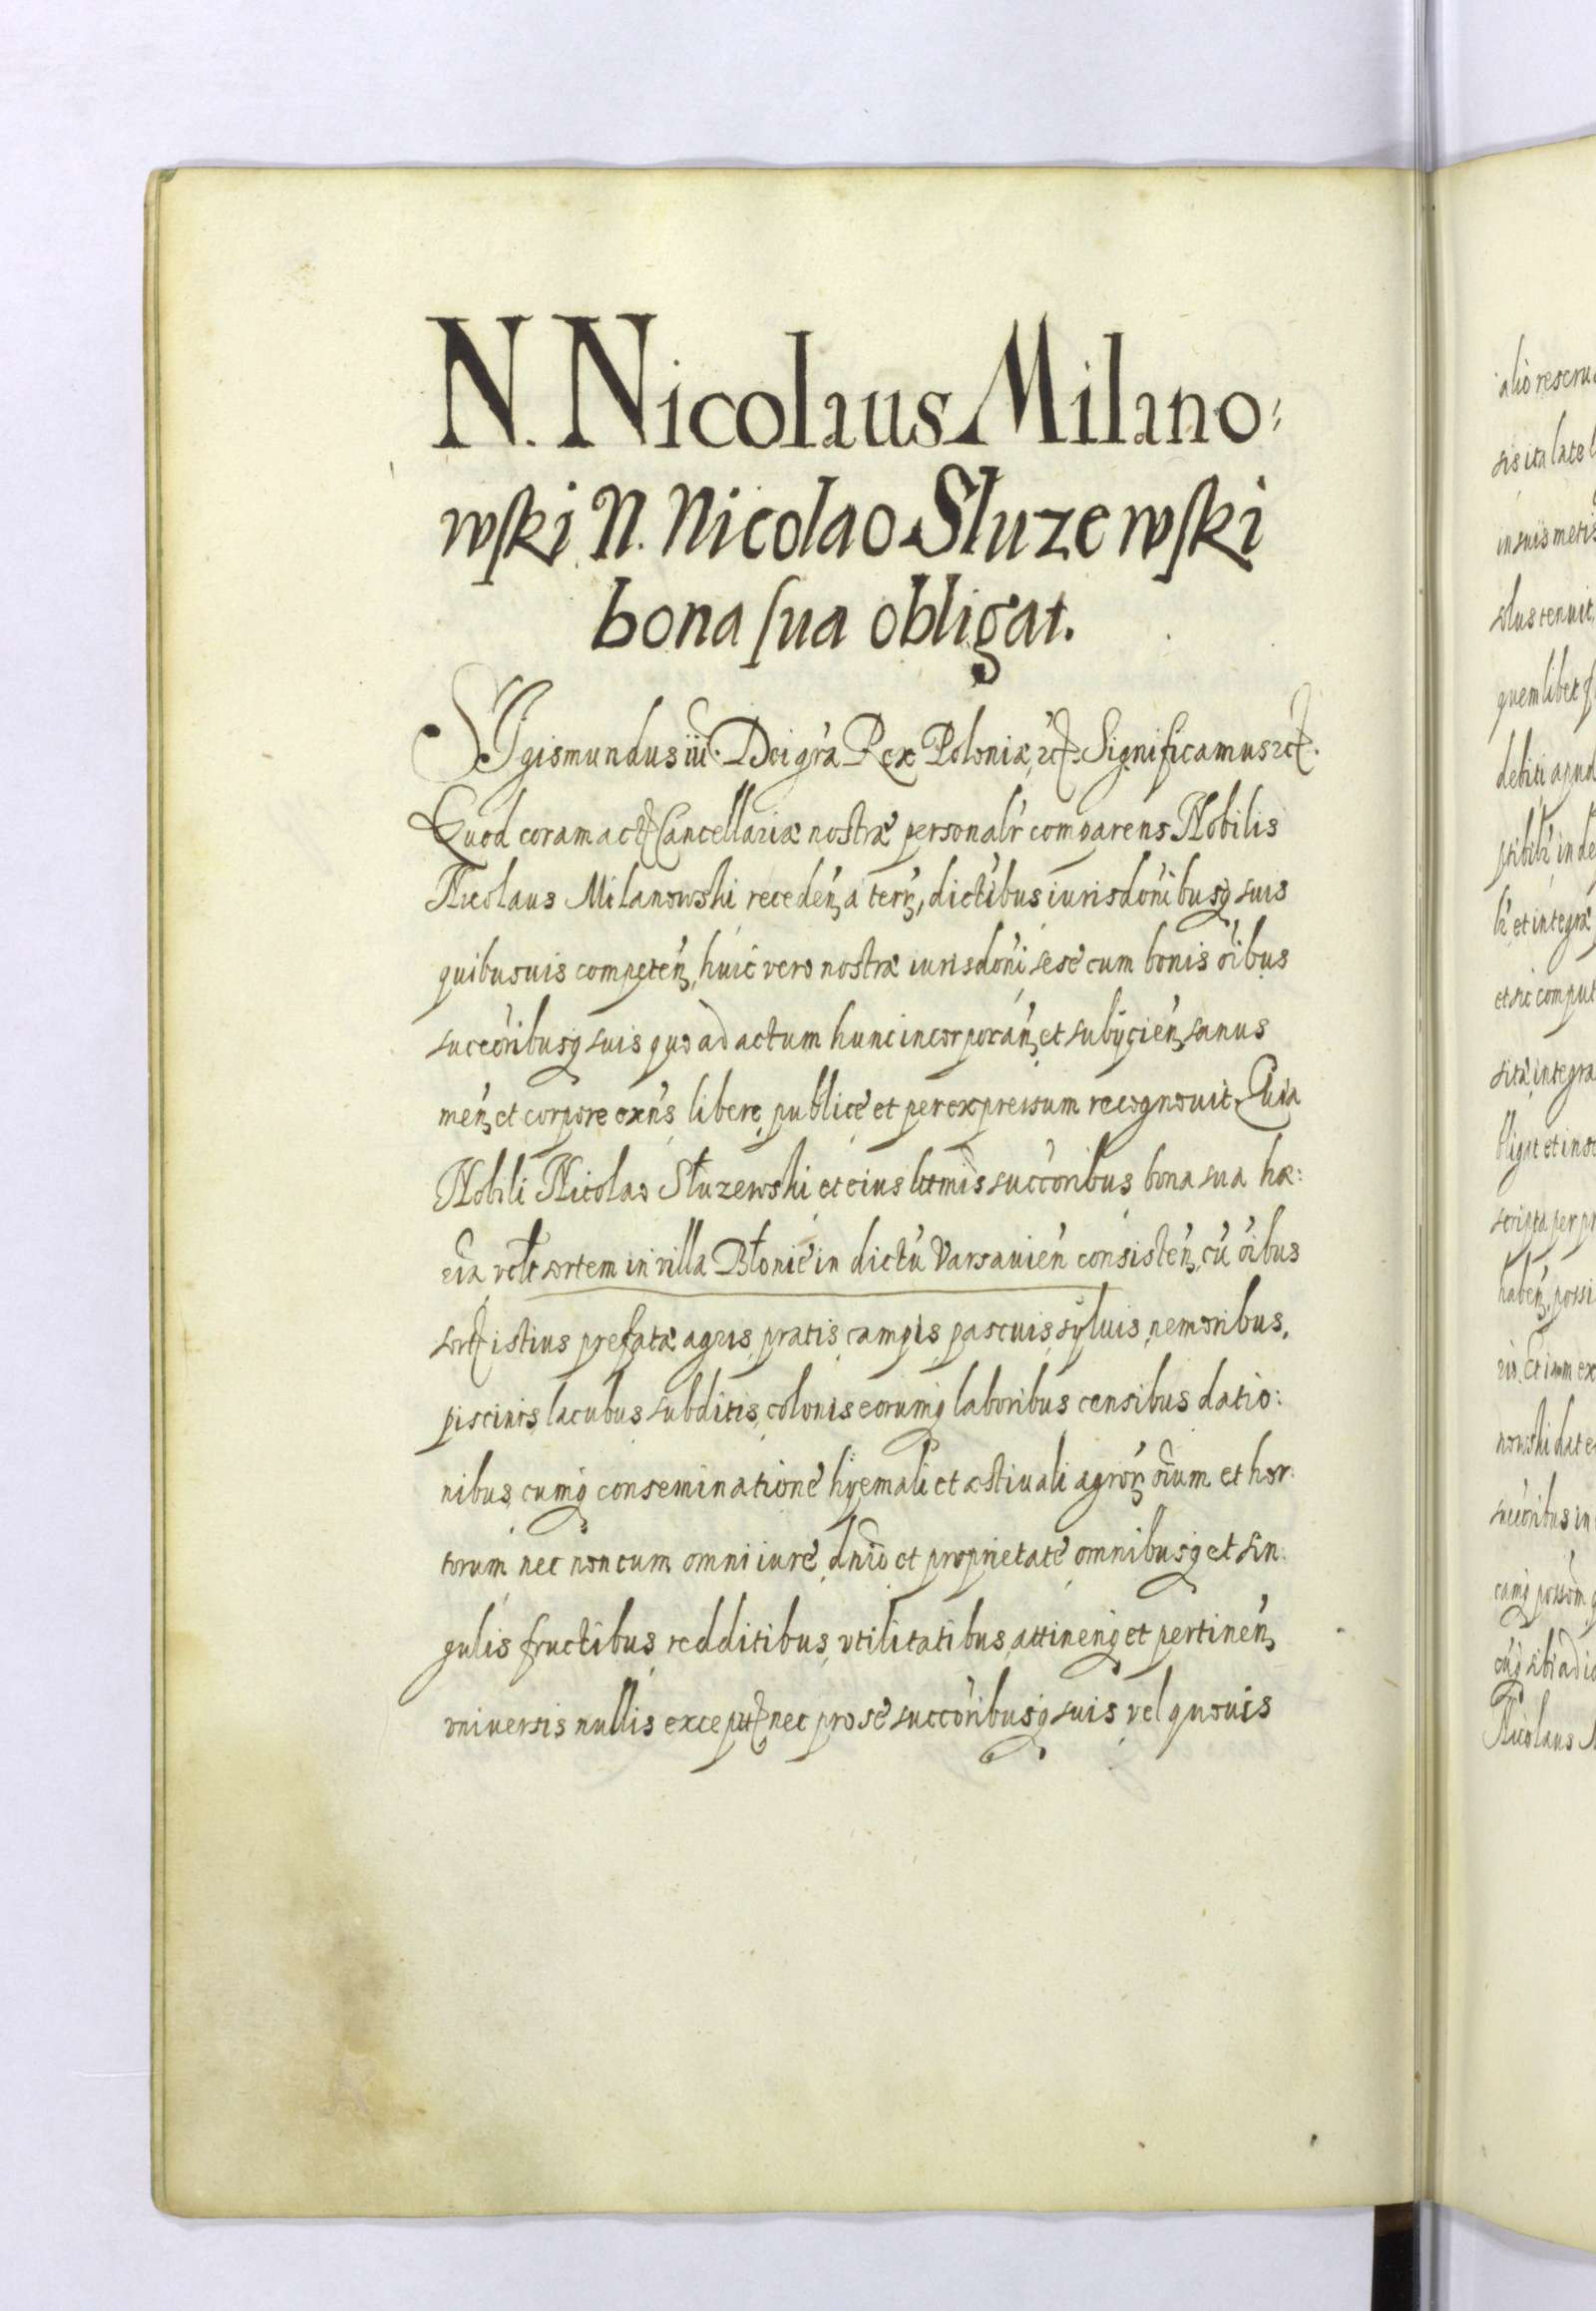 N. Nicolaus Milano:
wſki N. Nicolao Sluzewſki
bona ſua obligat.
SIgismundus iii. Dei gra Rex Poloniæ, etc. Significamus etc.
Quod coram act Cancellariæ nostræ personalr comparens Nobilis
Nicolaus Milanowski receden a terr, dictibus iurisdonibusq suis
quibusuis competen, huic vero nostræ iurisdoni sese cum bonis oibus
succoribusq suis quo ad actum hunc incorporan et subijcien sanus
men et corpore exns libere publice et per expressum recognouit. Quia
Nobili Nicolao Słuzewski et eius littmis succoribus bona sua hæ:
ria vtle sortem in villa Błonie in dictu Varsauien consisten, cu oibus
sort istius prefatæ agris, pratis, campis, pascuis, syluis, nemoribus,
piscinis, lacubus, subditis, colonis eorumq laboribus censibus datio:
nibus, cumq conseminatione hyemali et æstiuali agror oium et hor:
torum nec non cum omni iure, dnio et proprietate omnibusq et sin:
gulis fructibus, redditibus, vtilitatibus, attinenq et pertinen
vniuersis nullis except nec pro se succoribusq suis, vel quouis
alio reseru
sis ita late l
in suis metis
solus tenuit,
quemlibet
debiti apud
et integræ
et sic comput
sita, integra
bligat et in
scripta per pr
haben, possi
nowski dat e
succoribus in
Nicolaus M